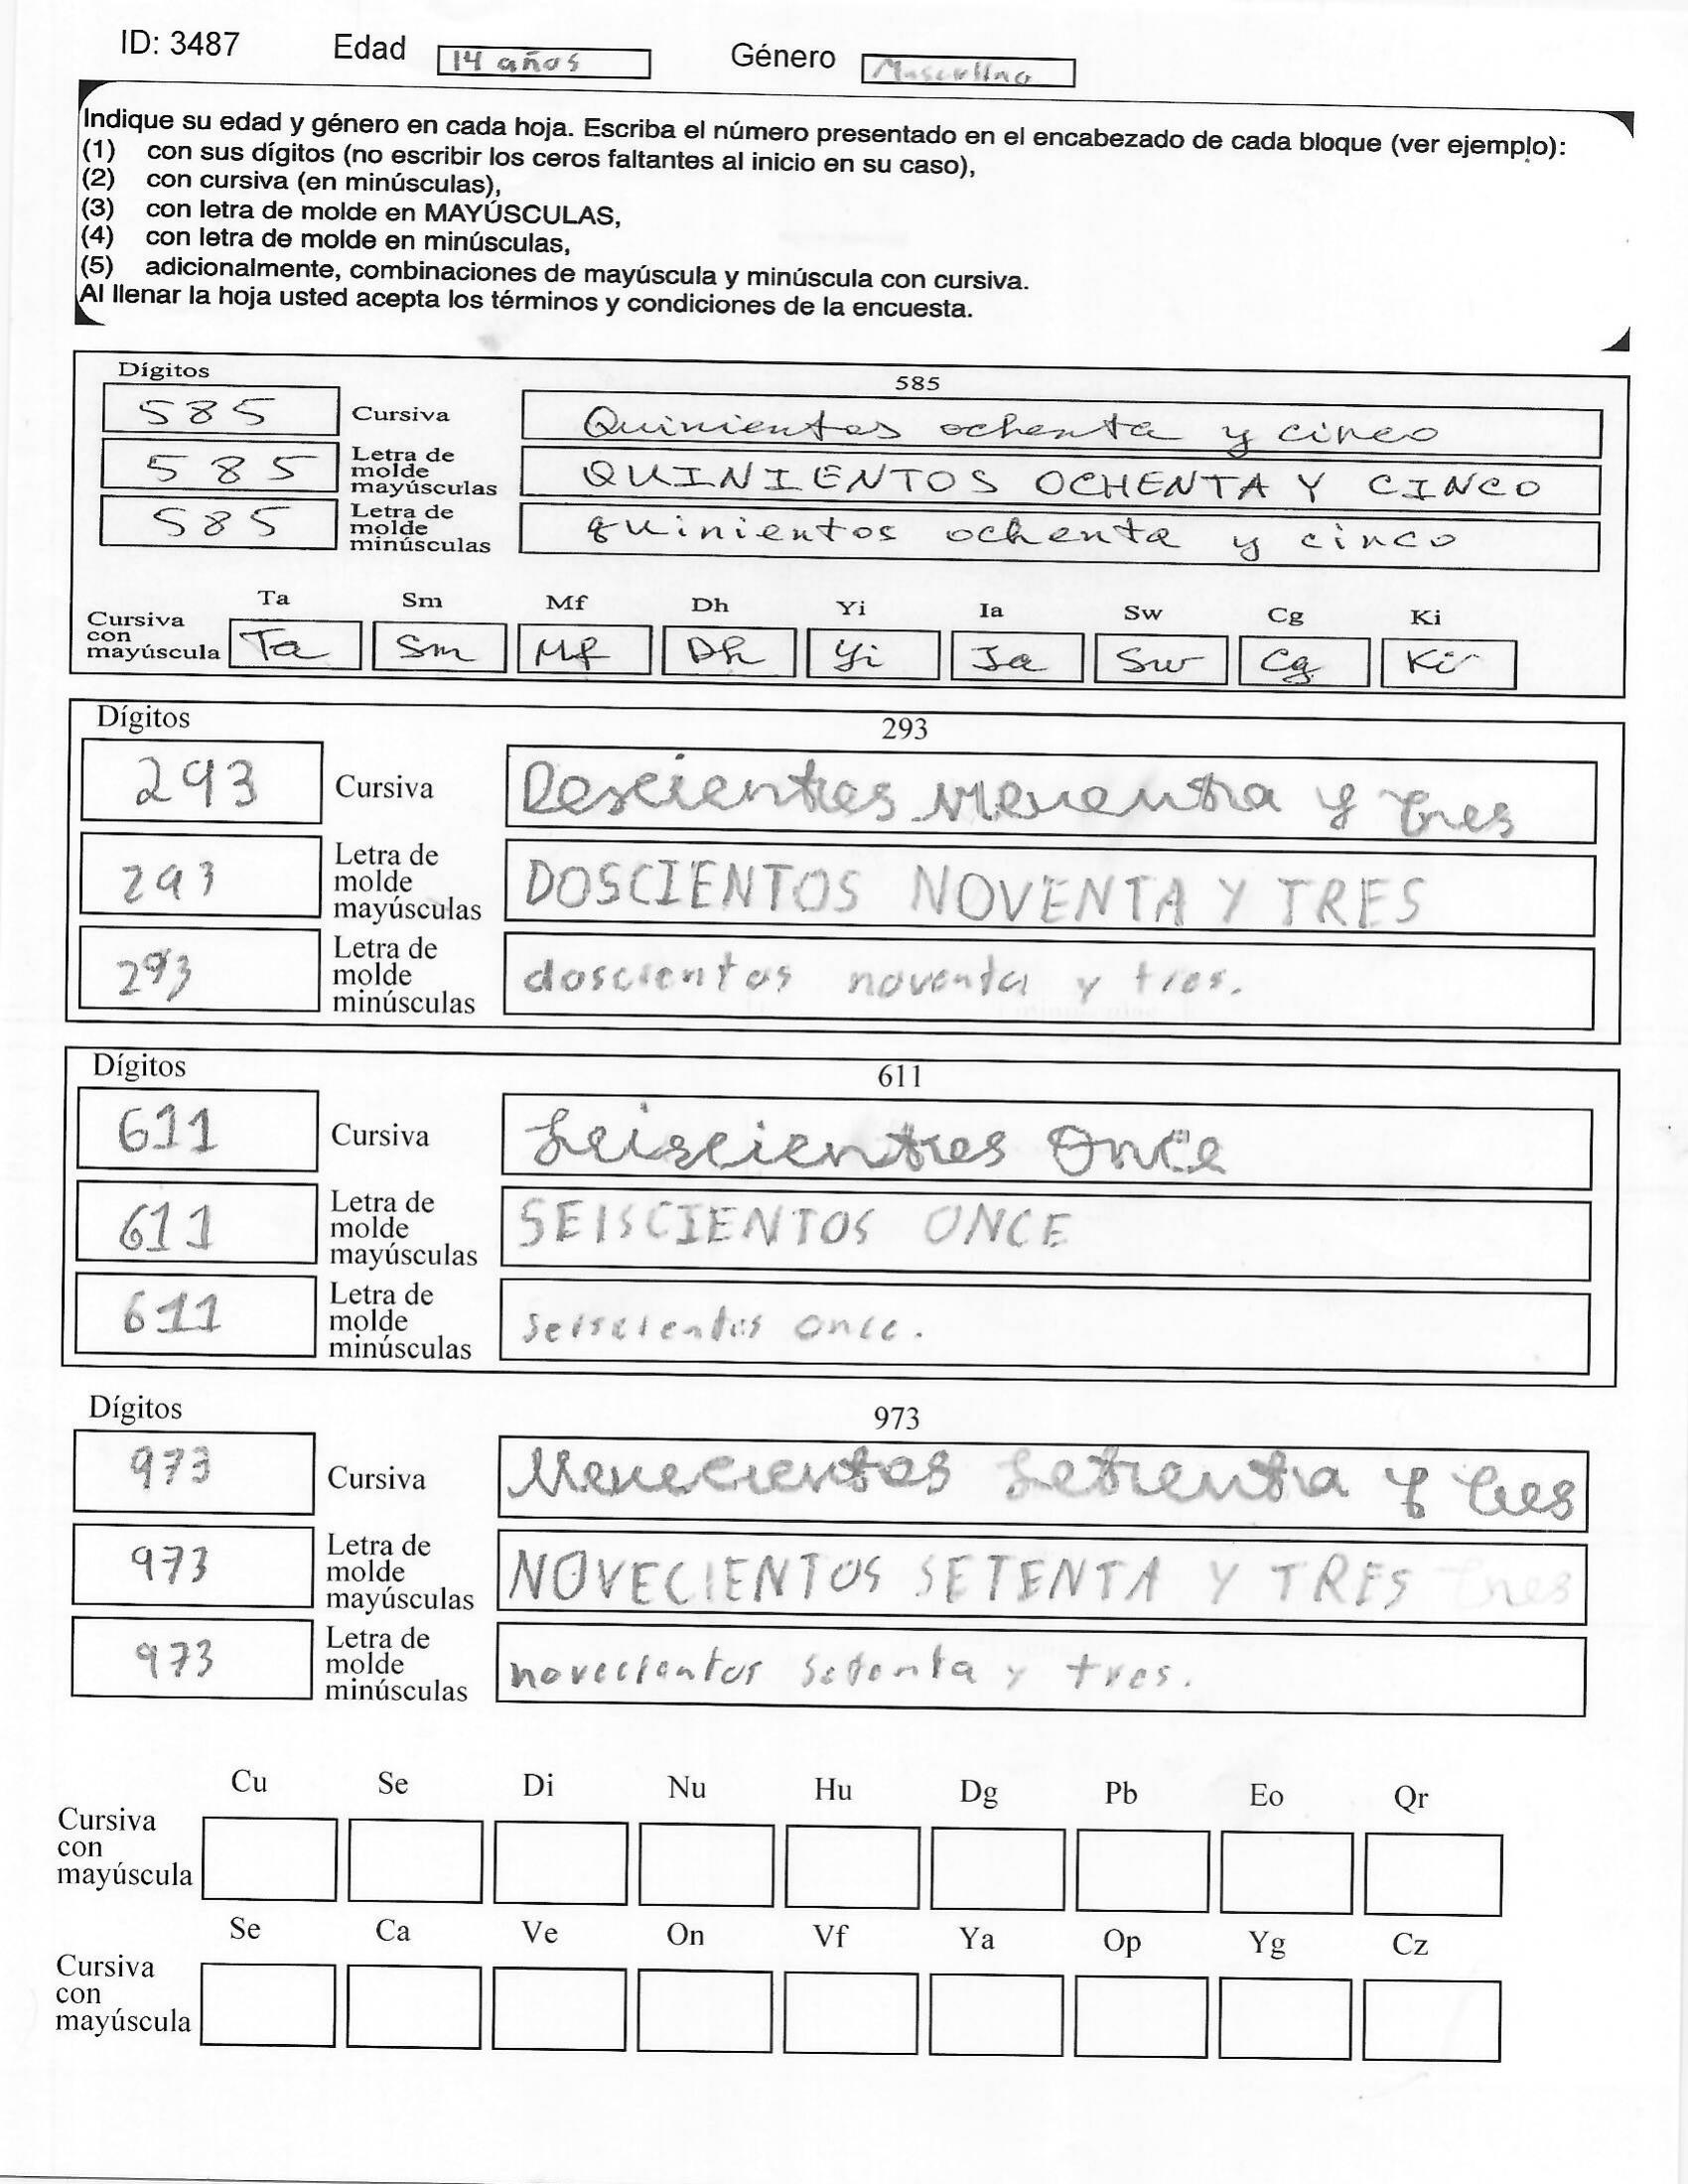 ID: 3487 Edad 14 años Género Masculino
Indique su edad y género en cada hoja. Escriba el número presentado en el encabezado de cada bloque (ver ejemplo):
(1) con sus dígitos (no escribir los ceros faltantes al inicio en su caso),
(2) con cursiva (en minúsculas),
(3) con letra de molde en MAYÚSCULAS,
(4) con letra de molde en minúsculas,
(5) adicionalmente, combinaciones de mayúscula y minúscula con cursiva.
Al llenar la hoja usted acepta los términos y condiciones de la encuesta.
Dígitos 585
585 Cursiva Quinientos ochenta y cinco
585 Letra de molde mayúsculas QUINIENTOS OCHENTA Y CINCO
585 Letra de molde minúsculas quinientos ochenta y cinco
Ta Sm Mf Dh Yi Ia Sw Cg Ki
Cursiva con mayúscula Ta Sm Mf Dh Yi Ia Sw Cg Ki
Dígitos 293
293 Cursiva Doscientos Noventa y tres
293 Letra de molde mayúsculas DOSCIENTOS NOVENTA Y TRES
293 Letra de molde minúsculas doscientos noventa y tres.
Dígitos 611
611 Cursiva Seiscientos Once
611 Letra de molde mayúsculas SEISCIENTOS ONCE
611 Letra de molde minúsculas seiscientos once.
Dígitos 973
973 Cursiva Novecientos Setenta y tres
973 Letra de molde mayúsculas NOVECIENTOS SETENTA Y TRES tres
973 Letra de molde minúsculas novecientos setenta y tres.
Cu Se Di Nu Hu Dg Pb Eo Qr
Cursiva con mayúscula
Se Ca Ve On Vf Ya Op Yg Cz
Cursiva con mayúscula